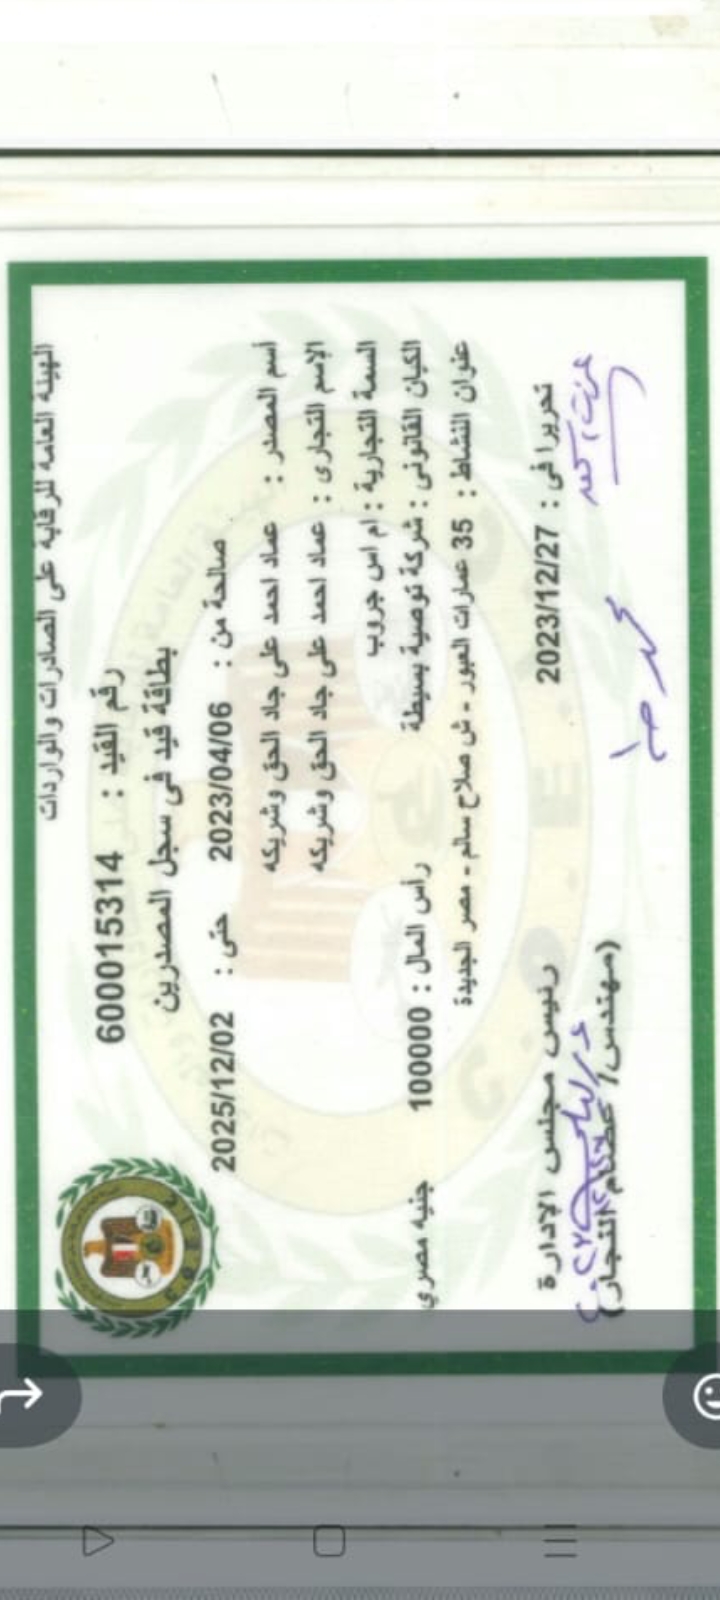 الهيئة العامة للرقابة على الصادرات والواردات
رقم القيد : 600015314
بطاقة قيد فى سجل المصدرين
صالحة من : 2023/04/06 حتى : 2025/12/02
أسم المصدر : عماد احمد على جاد الحق وشريكه
الإسم التجارى : عماد احمد على جاد الحق وشريكه
السمة التجارية : ام اس جروب
الكيان القانونى : شركة توصية بسيطة رأس المال : 100000 جنيه مصري
عنوان النشاط : 35 عمارات العبور - ش صلاح سالم - مصر الجديدة
تحريرا فى : 2023/12/27
رئيس مجلس الإدارة
(مهندس/ عصام النجار)